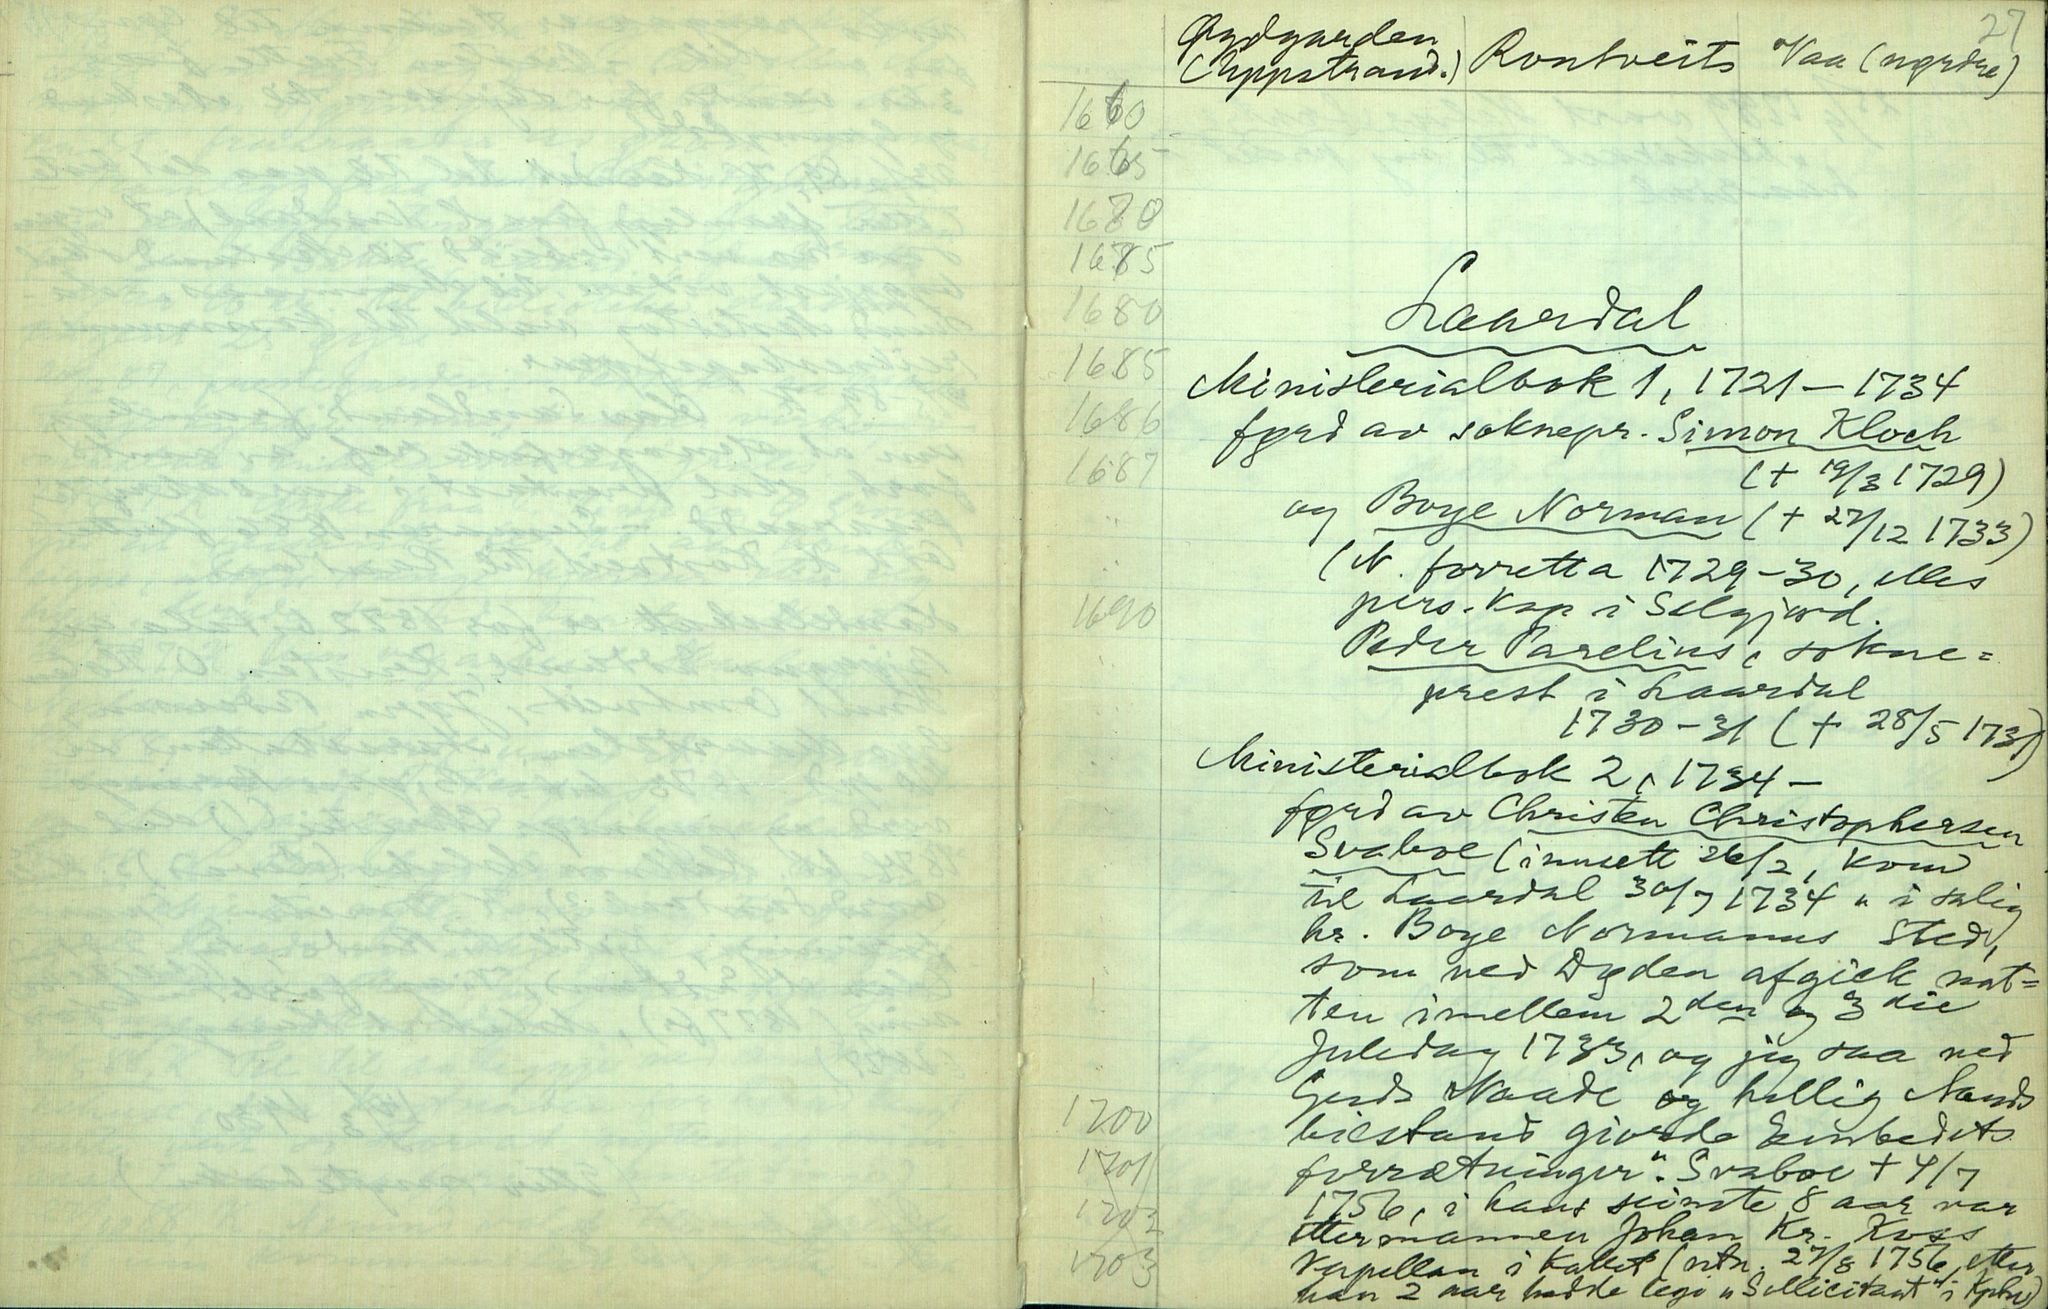 27
Øygarden Rontveit Vaa (nørdre)
(Uppstrand.)
1660
1665
1670
1675
1680
1685
1686
1687
1690
1700
1701
1702
1703
Laardal
Ministerialbok 1, 1721–1734
førd av soknepr. Simon Kloch
(+ 19/3 1729)
og Boye Norman (+ 27/12 1733)
(N. forretta 1729–30, elles
pers. kap i Selgjord.
Peder Parelius, sokne=
prest i Laardal
1730–31 (+ 28/5 1731)
Ministerialbok 2, 1734–
førd av Christen Christophersen
Svaboe (innsett 26/2, kom
til Laardal 30/7 1734 „ i salig
hr. Boye Normanns Sted,
som ved Døden afgick nat=
ten imellem 2den og 3die
Juledag 1733, og jeg saa ved
Guds Naade og hellig Aands
biestand giorde Embedets
forrætninger". Svaboe + 4/7
1756, i hans seinste 8 aar var
ettermannen Johan Kr. Koss
kapellan i kallet (utn. 27/8 1756, etter
han 2 aar hadde legi „Sollicitant" i Kjbhv)